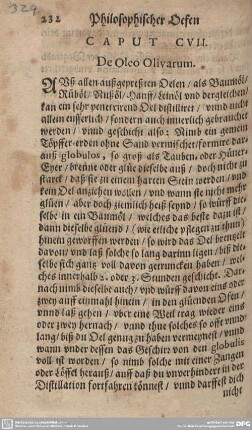 324
232 Philosophischer Oefen
CAPUT CVII.
De Oleo Olivarum.
AVß allen außgepreßten Oelen / als Baumöl/
Rüböl/ Nußöl/ Hanff/ Leinöl vnd dergleichen/
kan ein sehr penetrirend Oel distilliret / vnnd nicht
allein eusserlich / sondern auch innerlich gebrauchet
werden / vnnd geschicht also: Nimb ein gemein
Töpffer-erden ohne Sand vermischet/formire dar-
auß globulos, so groß als Tauben- oder Hüner-
Eyer / brenne oder glüe dieselbe auß / doch nicht so
starck/ daß sie zu einem harten Stein werden / vnd
kein Oel anziehen wollen / vnd wann sie nicht mehr
glüen/ aber doch ziemlich heiß seynd / so würff die-
selbe in ein Baumöl / welches das beste dazu ist/
dann dieselbe glüend / (wie etliche pflegen zu thun)
hinein geworffen werden / so wird das Oel brentzle
davon / vnd laß solche so lang darinn ligen/ biß die-
selbe sich gantz voll davon getruncken haben / wel-
ches innerhalb 2. oder 3. Stunden geschicht. Dar-
nach nimb dieselbe auch/ vnd würff davon eins oder
zwey auff einmahl hinein / in den glüenden Ofen/
vnnd laß gehen / vber eine Weil trag wieder eins
oder zwey hernach / vnnd thue solches so offt vnnd
lang/ biß du Oel genug zu haben vermeynest / vnnd
wann vnder dessen das Geschirr von den globulis
voll ist worden / so nimb solche mit einer Zangen
oder Löffel herauß/ auff daß du vnverhindert in der
Distillation fortfahren könnest / vnd darffest dich
nicht